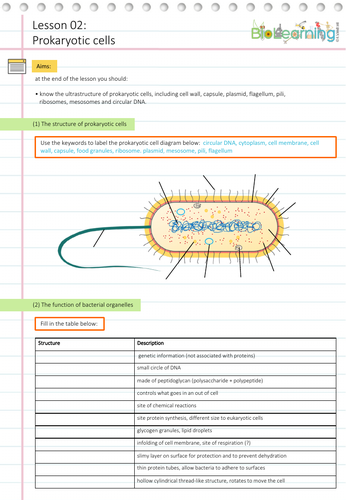 Lesson 02:
Prokaryotic cells
BioLearning
Aims:
at the end of the lesson you should:
• know the ultrastructure of prokaryotic cells, including cell wall, capsule, plasmid, flagellum, pili,
ribosomes, mesosomes and circular DNA.
(1) The structure of prokaryotic cells
Use the keywords to label the prokaryotic cell diagram below: circular DNA, cytoplasm, cell membrane, cell
wall, capsule, food granules, ribosome. plasmid, mesosome, pili, flagellum
(2) The function of bacterial organelles
Fill in the table below:
Structure Description
genetic information (not associated with proteins)
small circle of DNA
made of peptidoglycan (polysaccharide + polypeptide)
controls what goes in an out of cell
site of chemical reactions
site protein synthesis, different size to eukaryotic cells
glycogen granules, lipid droplets
infolding of cell membrane, site of respiration (?)
slimy layer on surface for protection and to prevent dehydration
thin protein tubes, allow bacteria to adhere to surfaces
hollow cylindrical thread-like structure, rotates to move the cell